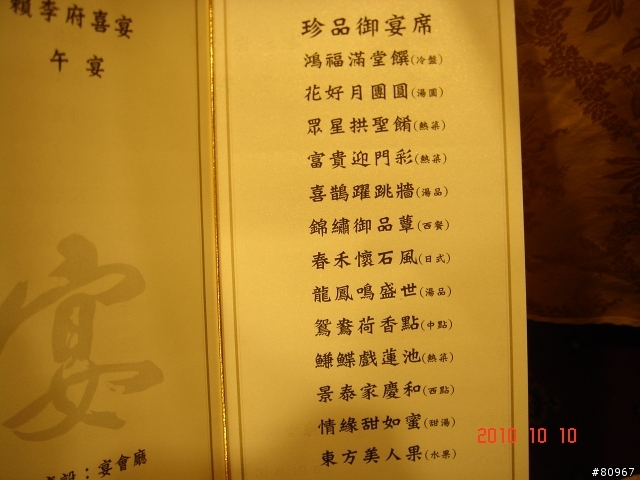 賴李府喜宴
午宴
宴
席設：宴會廳
珍品御宴席
鴻福滿堂饌(冷盤)
花好月團圓(湯圓)
眾星拱聖餚(熱菜)
富貴迎門彩(熱菜)
喜鵲躍跳牆(湯品)
錦繡御品蕈(西餐)
春禾懷石風(日式)
龍鳳鳴盛世(湯品)
鴛鴦荷香點(中點)
鰜鰈戲蓮池(熱菜)
景泰家慶和(西點)
情緣甜如蜜(甜湯)
東方美人果(水果)
2010 10 10
#80967